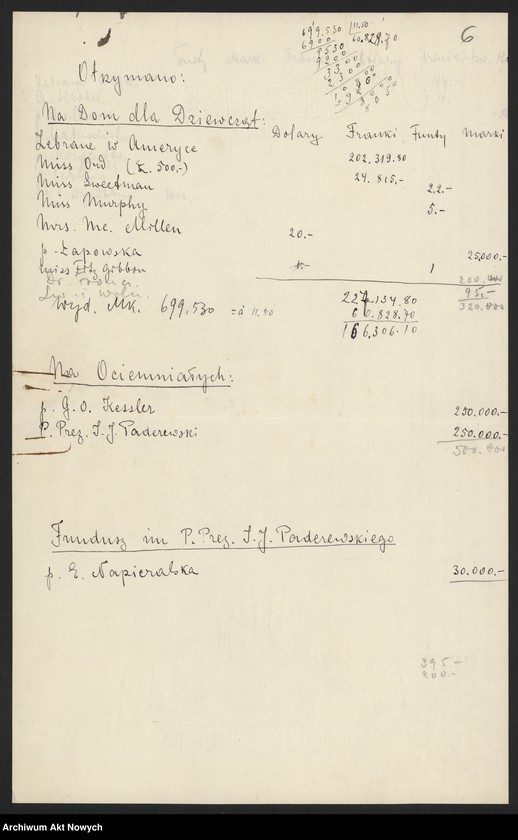 6
699.530 | 11.50
6900 60.828.70
9530
9200
3300
Otrzymano:
Na Dom dla Dziewcząt:
Dolary Franki Funty Marki
Zebrane w Ameryce 202.319.80
Miss Ord (£. 500,-) 24.815,-
Miss Sweetman 22.-
Miss Murphy 5.-
Mrs. Mc. Millen 20.-
p. Łapowska 25.000.-
Miss Fitz Gibbon 1
200.000
95.-
320.000
Wyd. Mk. 699.530 = à 11.50 227.134.80
60.828.70
166.306.10
Na Ociemniałych:
p. G. O. Kessler 250.000.-
P. Prez. I. J. Paderewski 250.000.-
500.000
Fundusz im P. Prez. I. J. Paderewskiego
p. E. Napieralska 30.000.-
395.-
200.-
Archiwum Akt Nowych